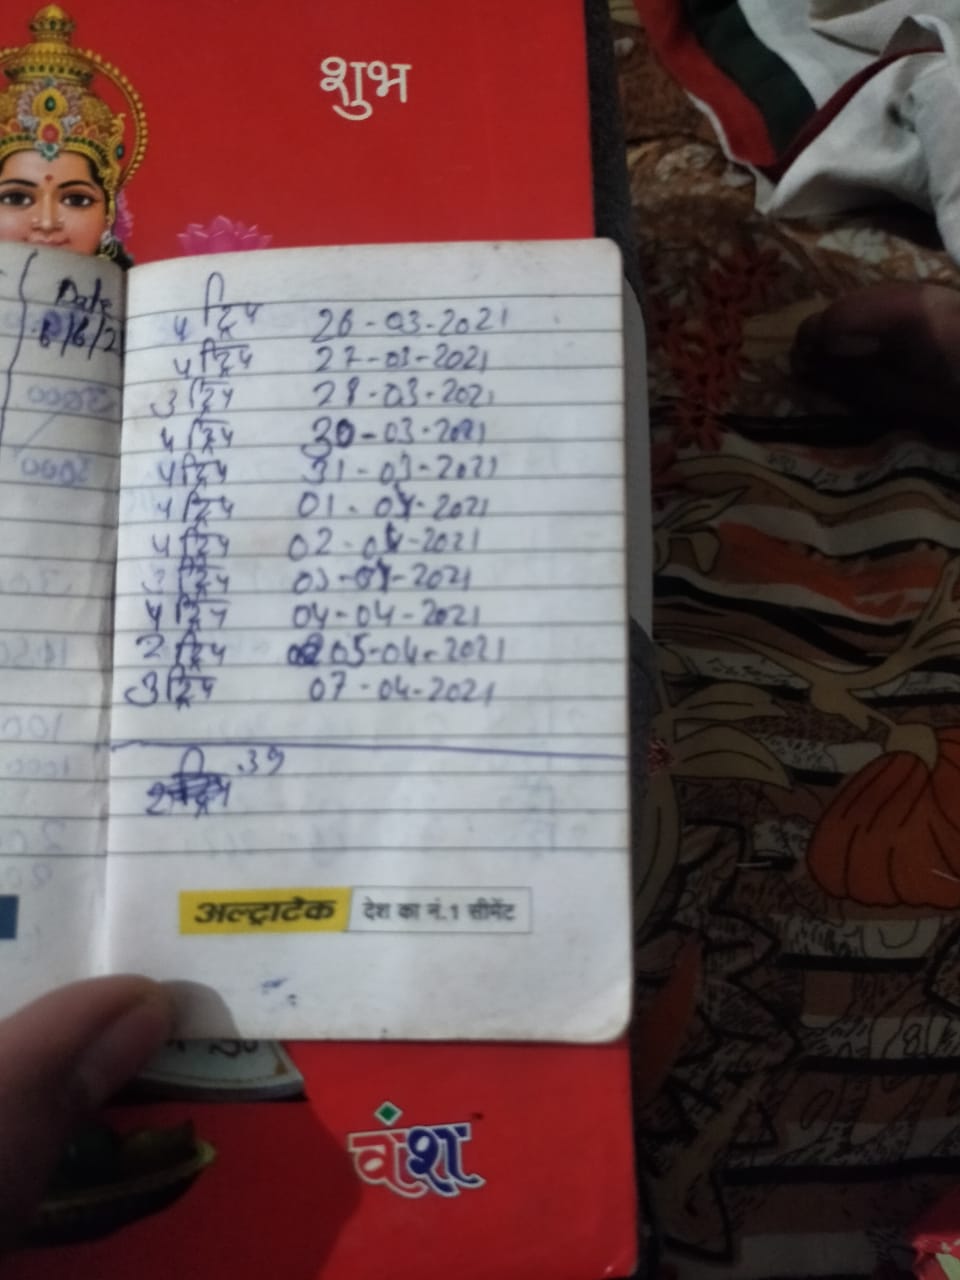 शुभ
Date
6/6/2
4 ट्रिप 26-03-2021
4 ट्रिप 27-03-2021
3 ट्रिप 28-03-2021
4 ट्रिप 30-03-2021
4 ट्रिप 31-03-2021
4 ट्रिप 01-04-2021
4 ट्रिप 02-04-2021
3 ट्रिप 03-04-2021
4 ट्रिप 04-04-2021
2 ट्रिप 05-04-2021
3 ट्रिप 07-04-2021
39
अल्ट्राटेक देश का नं.1 सीमेंट
वंश